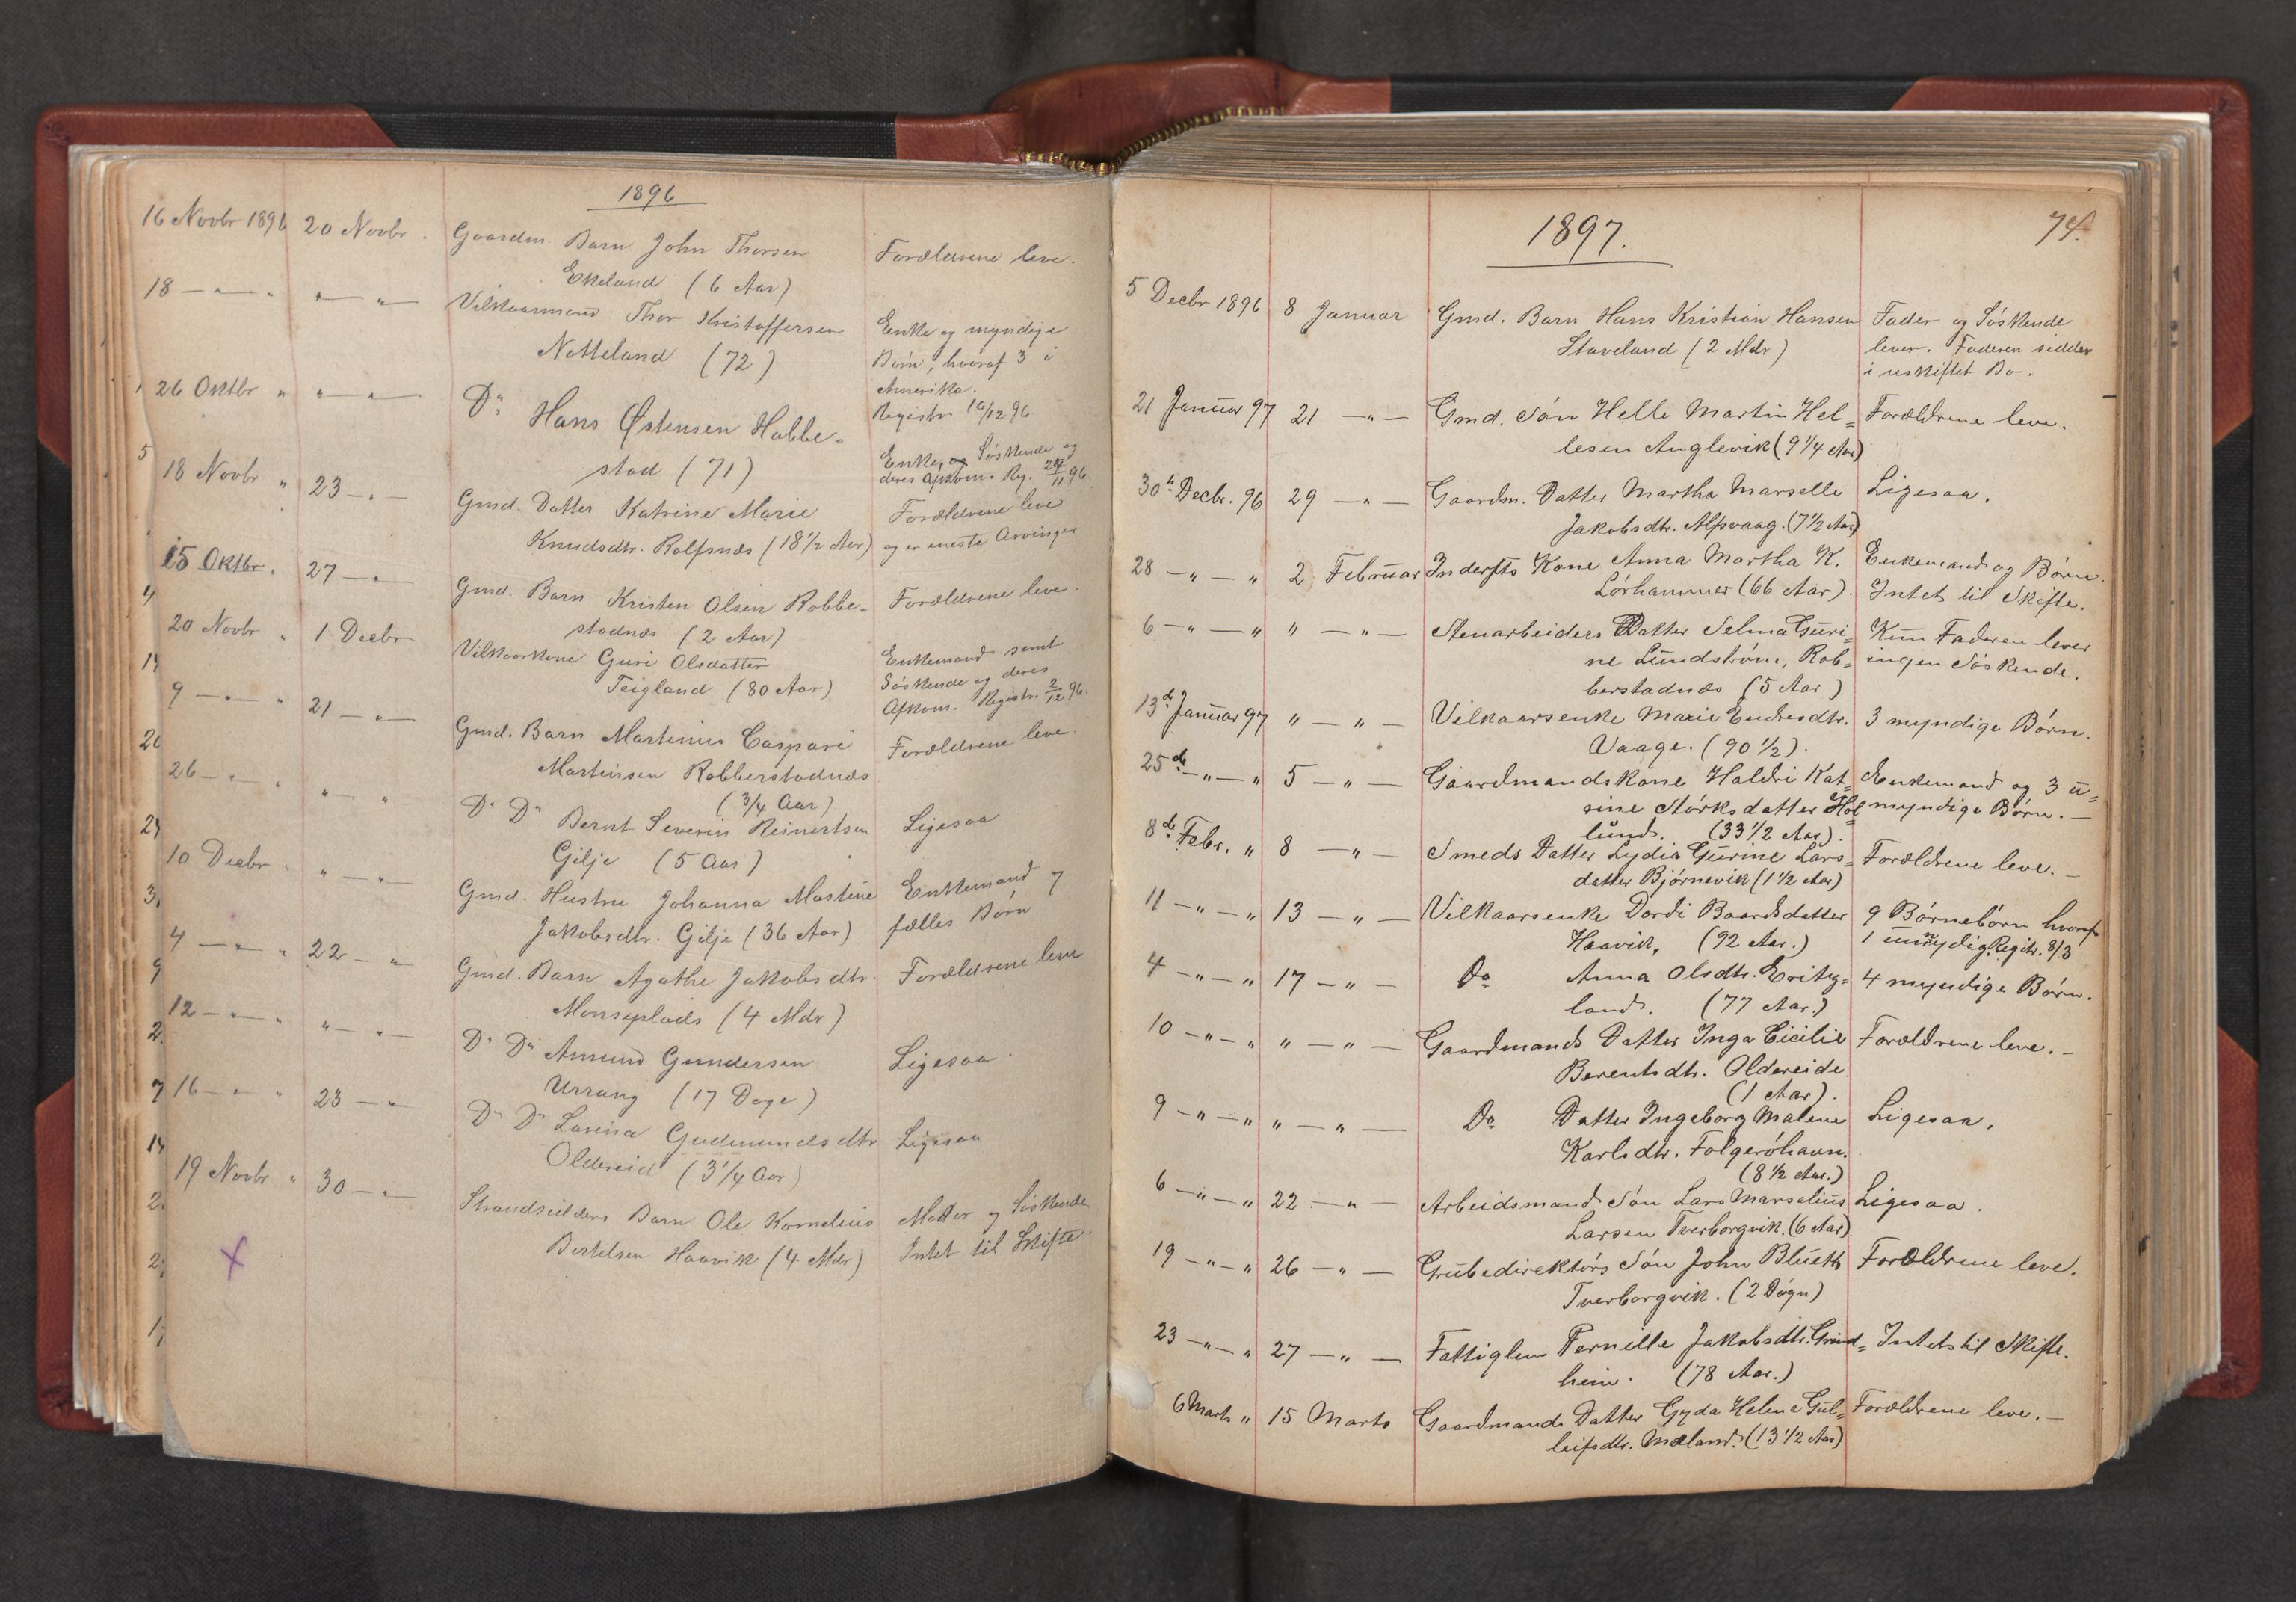 1896
16 Novbr 1896 20 Novbr. Gaardm. Barn John Thorsen Forældrene leve.
Ekeland (6 Aar)
18 — " — " " — " — Vilkaarmand Thor Kristoffersen Enke og myndige
Notteland (72) Børn, hvoraf 3 i
Amerika.
26 Oktbr " " — " — Do Hans Østensen Habbe- Registr. 10/12 96
stad (71) Enke, og Søskende og
deres Afkom. Reg. 96
18 Novbr " 23 — " — Gmd. Datter Katrine Marie Forældrene leve
Knudsdtr. Rolfsnæs (18 1/2 Aar) og er eneste Arvinger
15 Oktbr. 27 — " — Gmd. Barn Kristen Olsen Robbe- Forældrene leve.
stadnæs (2 Aar)
20 Novbr " 1 Decbr Vilkaarkone Guri Olsdatter Enkemand samt
Teigland (80 Aar) Søskende og deres
Afkom. Registr. 2/12 96.
9 — " — " 21 — " — Gmd. Barn Martinius Caspari Forældrene leve.
Martinsen Robberstadnæs
(3/4 Aar)
26 — " — " " — " Do Do Bernt Severin Reinertsen Ligesaa
Gilje (5 Aar)
10 Decbr " " — " — Gmd. Hustru Johanna Martine Enkemand 7
Jakobsdtr. Gilje (36 Aar) fælles Børn
4 — " — " 22 — " Gmd. Barn Agathe Jakobsdtr. Forældrene leve
Monseplads (4 Mdr)
12 — " — " " — " — Do Do Amund Gundersen Ligesaa.
Urrang (17 Dage)
16 — " — " 23 — " Do Do Lavina Gudmundsdtr Ligesaa
Oldereid (3 1/4 Aar)
19 Novbr " 30 — " — Strandsidders Barn Ole Kornelius Moder og Søskende
Bertelsen Haavik (4 Mdr) Intet til Skifte.
X
1897. 74.
5 Decbr 1896 8 Januar Gmd. Barn Hans Kristian Hansen Fader og Søskende
Staveland (2 Mdr) lever. Faderen sidder
i uskiftet Bo.
21 Januar 97 21 — " — Gmd. Søn Helle Martin Hel= Forældrene leve.
lesen Anglevik (9 1/4 Aar)
30te Decbr. 96 29 — " — Gaardm. Datter Martha Marselle Ligesaa.
Jakobsdtr. Alfsvaag. (7 1/2 Aar)
28 — " — " 2 Februar Indersts Kone Anna Martha K. Enkemand og Børn.
Lørhammer (66 Aar). Intet til Skifte.
6 — " — " " — " — Stenarbeiders Datter Selma Guri= Kun Faderen lever
ne Lundstrøm, Rob= ingen Søskende.
berstadnæs (5 Aar)
13de Januar 97 " — " — Vilkaarsenke Marie Endresdtr. 3 myndige Børn.
Vaage. (90 1/2).
25de — " — " 5 — " — Gaardmandskone Haldri Kat Enkemand og 3 u=
rine Størksdatter Høl= myndige Børn. —
lund. (33 1/2 Aar).
8de Febr. " 8 — " — Smeds Datter Lydia Gurine Lars= Forældrene leve. —
datter Bjørnevik (1 1/2 Aar)
11 — " — " 13 — " — Vilkaarsenke Dordi Baardsdatter 9 Børnebørn hvoraf
Haavik, (92 Aar.) 1 umyndig Regitr. 8/3
4 — " — " 17 — " — Do Anna Olsdtr. Eritz= 4 myndige Børn.
land. (77 Aar.)
10 — " — " " — " — Gaardmands Datter Inga Cicilie Forældrene leve. —
Berentsdtr. Oldereide
(1 Aar).
9 — " — " " — " — Do Datter Ingeborg Malene Ligesaa.
Karlsdtr. Folgerøhavn.
(8 1/2 Aar.)
6 — " — " 22 — " — Arbeidsmands Søn Lars Marselius Ligesaa.
Larsen Tverborgvik. (6 Aar)
19 — " — " 26 — " — Grubedirektørs Søn John Blueth Forældrene leve.
Tverborgvik. (2 Døgn)
23 — " — " 27 — " — Fattiglem Pernille Jakobsdtr. Grind= Intet til Skifte.
heim. (78 Aar.)
6 Marts " 15 Marts Gaardmands Datter Gyda Helene Gul= Forældrene leve. —
leifsdtr. Mæland. (13 1/2 Aar)